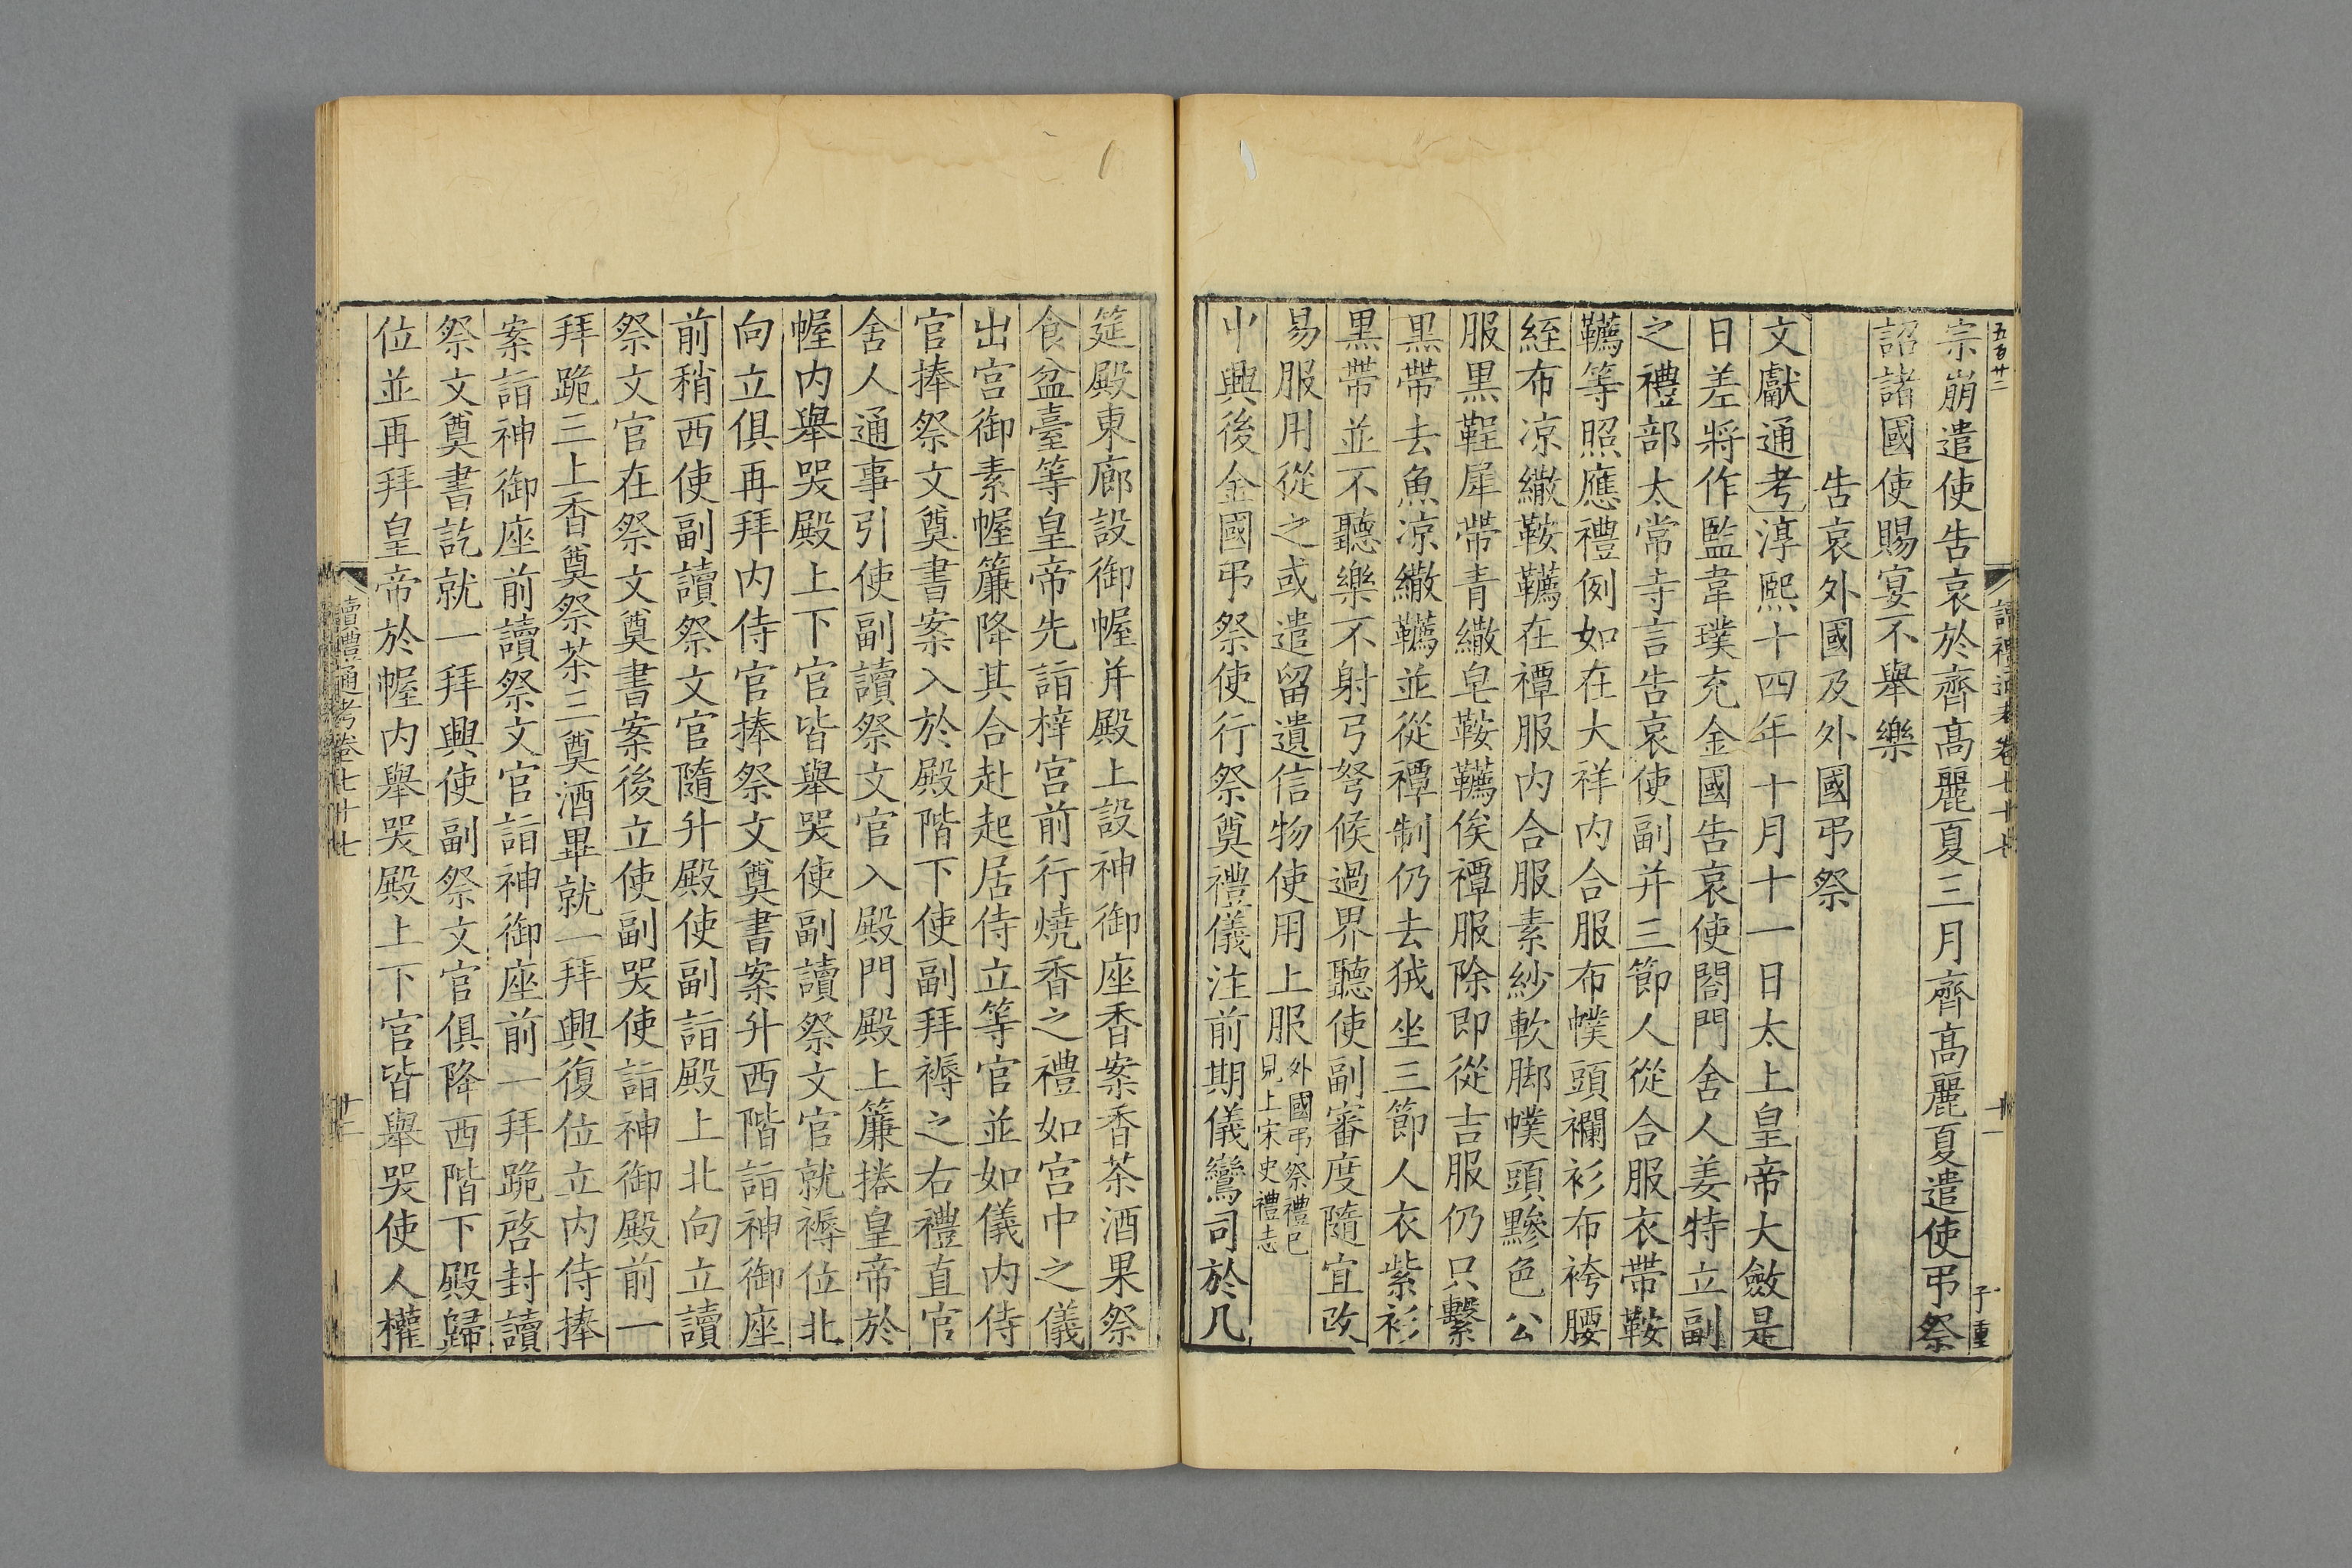 五百廿二
讀禮通考卷七十七
十一
子重
宗崩遣使告哀於齊髙麗夏三月齊髙麗夏遣使弔祭
詔諸國使賜宴不舉樂
告哀外國及外國弔祭
文獻通考淳熙十四年十月十一日太上皇帝大斂是
日差將作監韋璞充金國告哀使閤門舍人姜特立副
之禮部太常寺言告哀使副并三節人從合服衣帶鞍
韉等照應禮例如在大祥内合服布幞頭襴衫布袴腰
絰布凉繖鞍韉在禫服内合服素紗軟脚幞頭黲色公
服黒鞓犀帶青繖皂鞍韉俟禫服除即從吉服仍只繫
黒帶去魚凉繖韉並從禫制仍去狨坐三節人衣紫衫
黒帶並不聽樂不射弓弩候過界聽使副審度隨宜改
易服用從之或遣留遺信物使用上服外國弔祭禮已
見上宋史禮志
中興後金國弔祭使行祭奠禮儀注前期儀鸞司於几
筵殿東廊設御幄并殿上設神御座香案香茶酒果祭
食盆臺等皇帝先詣梓宫前行燒香之禮如宫中之儀
出宫御素幄簾降其合赴起居侍立等官並如儀内侍
官捧祭文奠書案入於殿階下使副拜褥之右禮直官
舍人通事引使副讀祭文官入殿門殿上簾捲皇帝於
幄内舉哭殿上下官皆舉哭使副讀祭文官就褥位北
向立俱再拜内侍官捧祭文奠書案升西階詣神御座
前稍西使副讀祭文官隨升殿使副詣殿上北向立讀
祭文官在祭文奠書案後立使副哭使詣神御殿前一
拜跪三上香奠祭茶三奠酒畢就一拜興復位立内侍捧
案詣神御座前讀祭文官詣神御座前一拜跪啓封讀
祭文奠書訖就一拜興使副祭文官俱降西階下殿歸
位並再拜皇帝於幄内舉哭殿上下官皆舉哭使人權
讀禮通考卷七十七
十二